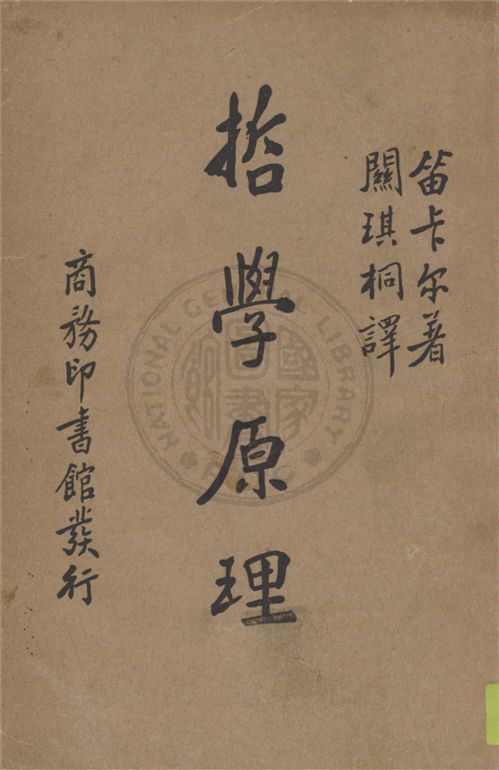 笛卡尔著
關琪桐譯
哲學原理
商務印書館發行
NATIONAL CENTRAL LIBRARY